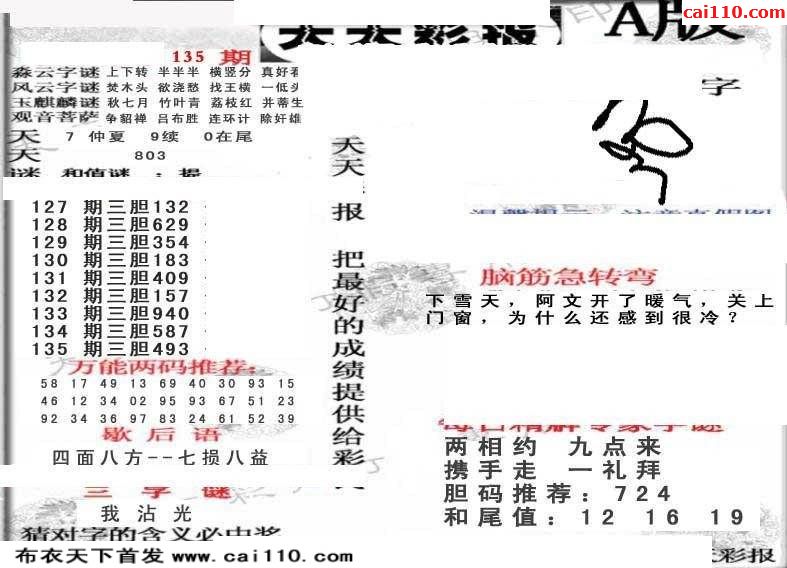 cai110.com
天天彩报
A版
135 期
淼云字谜 上下转 半半半 横竖分 真好看
风云字谜 焚木头 欲浇愁 找王横 一低头
玉麒麟谜 秋七月 竹叶青 荔枝红 并蒂生
观音菩萨 争貂禅 吕布胜 连环计 除奸雄
天 7 仲夏 9续 0在尾
天 803
谜 和值谜 :
字
127 期三胆132
128 期三胆629
129 期三胆354
130 期三胆183
131 期三胆409
132 期三胆157
133 期三胆940
134 期三胆587
135 期三胆493
万能两码推荐:
58 17 49 13 69 40 30 93 15
46 12 34 02 95 93 67 51 23
92 34 36 97 83 24 61 52 39
歇后语
四面八方--七损八益
三字谜
我沾光
猜对字的含义必中奖
天天报 把最好的成绩提供给彩
脑筋急转弯
下雪天，阿文开了暖气，关上
门窗，为什么还感到很冷？
每日精解专家字谜
两相约 九点来
携手走 一礼拜
胆码推荐: 724
和尾值: 12 16 19
布衣天下首发 www.cai110.com
天彩报